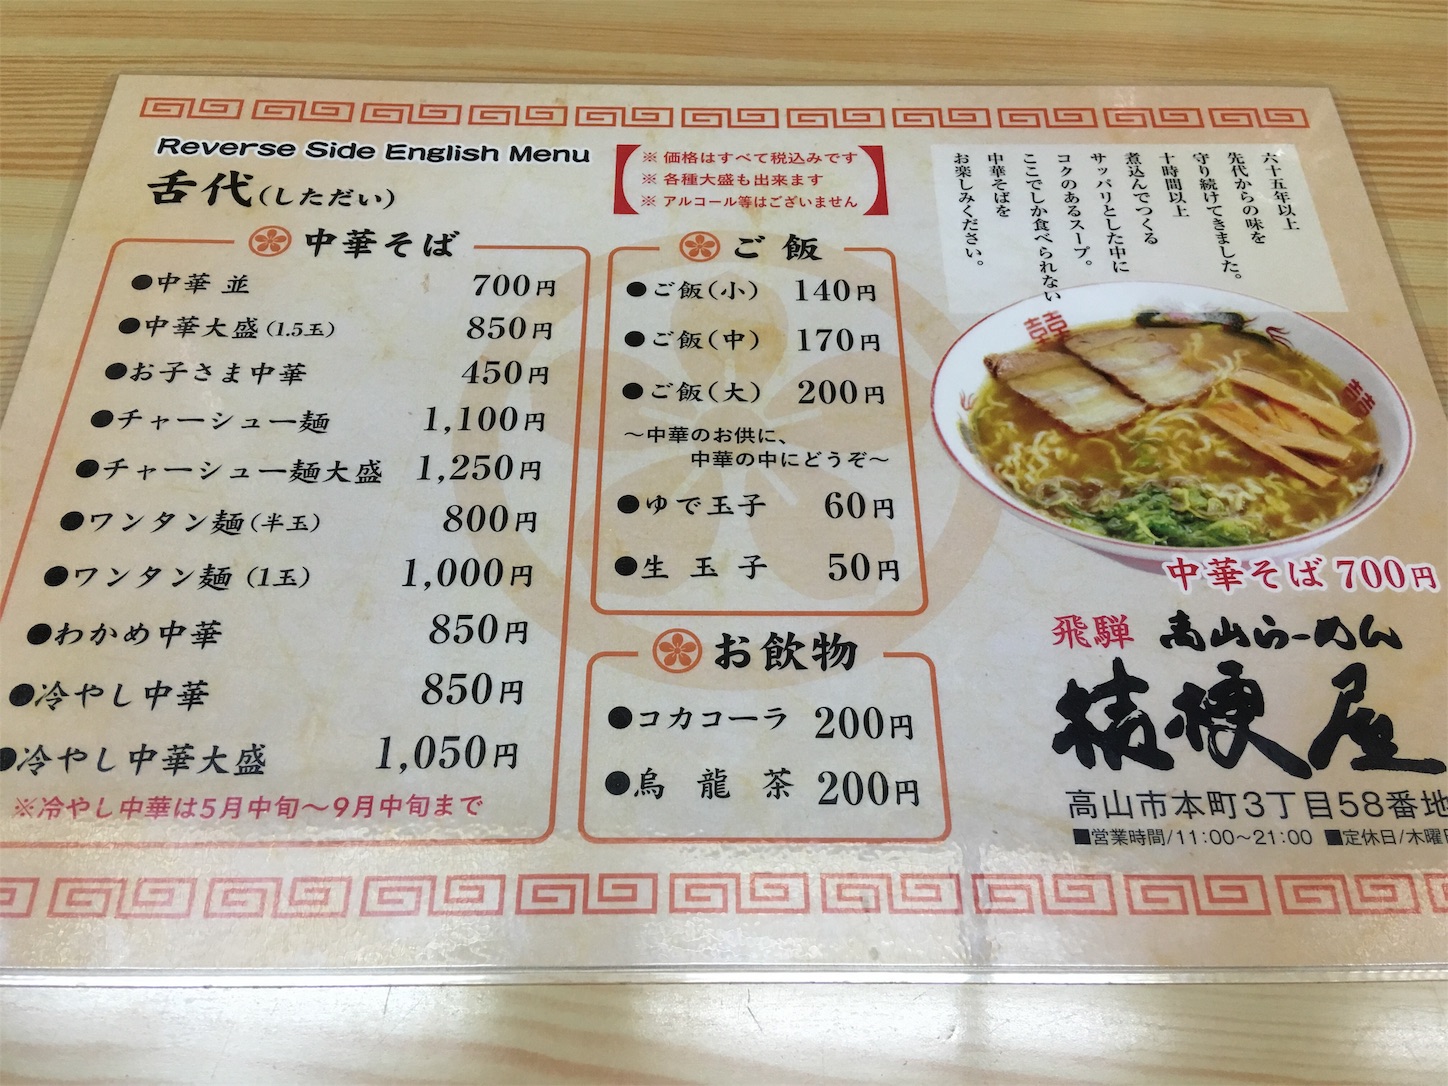 Reverse Side English Menu
舌代(しただい)
※ 価格はすべて税込みです
※ 各種大盛も出来ます
※ アルコール等はございません
中華そば
●中華 並 700円
●中華大盛(1.5玉) 850円
●お子さま中華 450円
●チャーシュー麺 1,100円
●チャーシュー麺大盛 1,250円
●ワンタン麺(半玉) 800円
●ワンタン麺(1玉) 1,000円
●わかめ中華 850円
●冷やし中華 850円
●冷やし中華大盛 1,050円
※冷やし中華は5月中旬~9月中旬まで
ご飯
●ご飯(小) 140円
●ご飯(中) 170円
●ご飯(大) 200円
~中華のお供に、
中華の中にどうぞ~
●ゆで玉子 60円
●生玉子 50円
お飲物
●コカコーラ 200円
●烏龍茶 200円
六十五年以上
先代からの味を
守り続けてきました。
十時間以上
煮込んでつくる
サッパリとした中に
コクのあるスープ。
ここでしか食べられない
中華そばを
お楽しみください。
囍
囍
中華そば 700円
飛騨 高山らーめん
桔梗屋
高山市本町3丁目58番地
■営業時間/11:00~21:00 ■定休日/木曜日